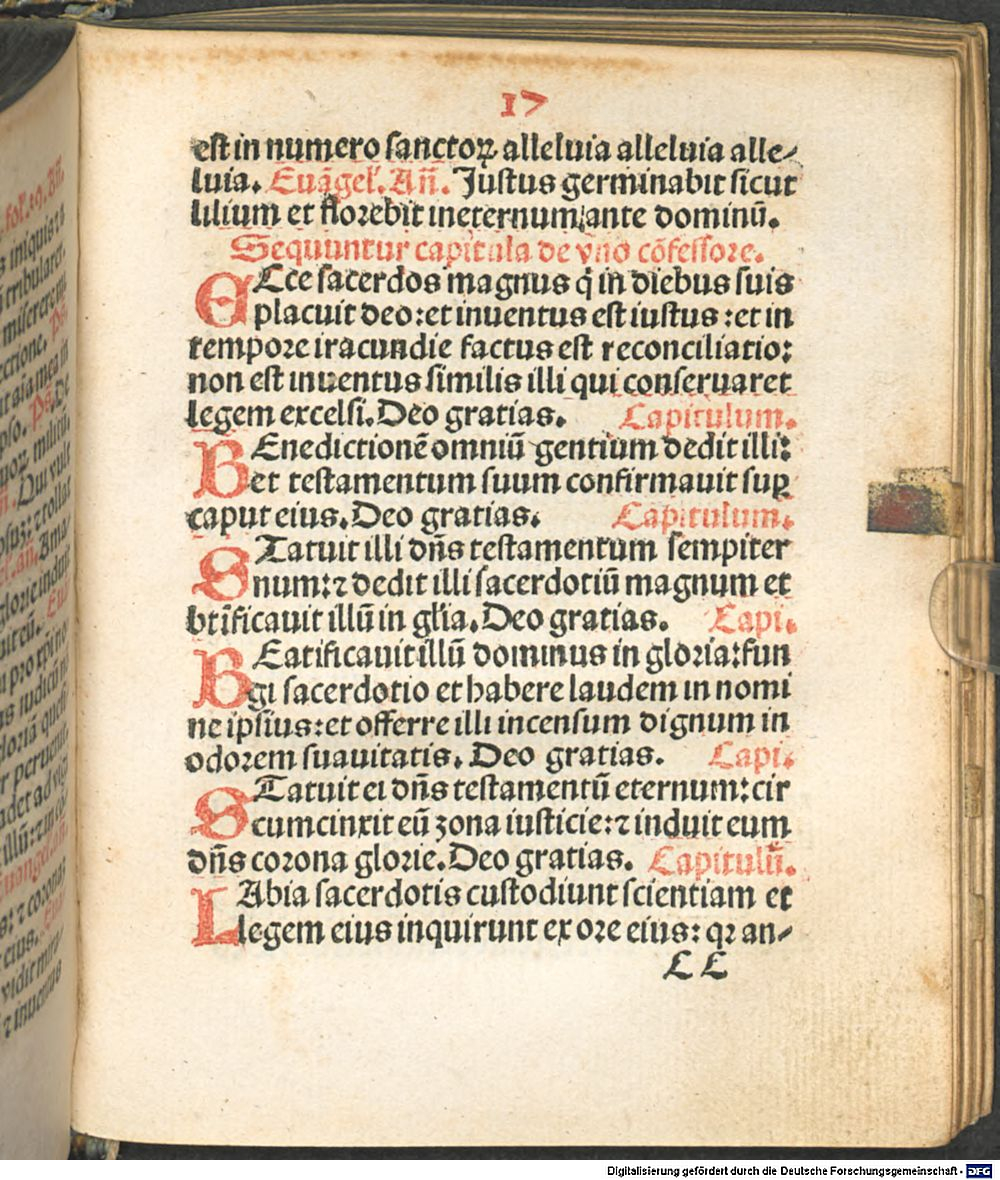 17
est in numero sanctoꝝ alleluia alleluia alle⸗
luia. Euāgel'. Añ. Justus germinabit sicut
lilium et florebit ineternum ante dominū.
Sequuntur capitula de vno cōfessore.
ECce sacerdos magnus q̇ in diebus suis
placuit deo: et inuentus est iustus: et in
tempore iracundie factus est reconciliatio:
non est inuentus similis illi qui conseruaret
legem excelsi. Deo gratias. Capitulum.
BEnedictionē omniū gentium dedit illi:
et testamentum suum confirmauit suꝑ
caput eius. Deo gratias. Capitulum.
STatuit illi dn̄s testamentum sempiter
num: ⁊ dedit illi sacerdotiū magnum et
bt̄ificauit illū in gl'ia. Deo gratias. Capi.
BEatificauit illū dominus in gloria: fun
gi sacerdotio et habere laudem in nomi
ne ipsius: et offerre illi incensum dignum in
odorem suauitatis. Deo gratias. Capi.
STatuit ei dn̄s testamentū eternum: cir
cumcinxit eū zona iusticie: ⁊ induit eum
dn̄s corona glorie. Deo gratias. Capitulū.
LAbia sacerdotis custodiunt scientiam et
legem eius inquirunt ex ore eius: qꝛ an⸗
CC
Digitalisierung gefördert durch die Deutsche Forschungsgemeinschaft - DFG